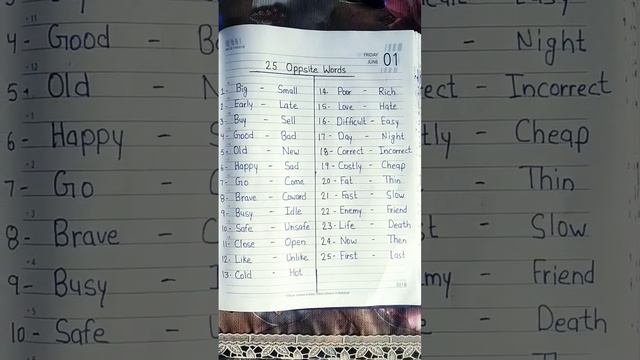 FRIDAY
JUNE 01
25 Oppsite Words
1- Big - Small
2- Early - Late
3- Buy - Sell
4- Good - Bad
5- Old - New
6- Happy - Sad
7- Go - Come
8- Brave - Coword
9- Busy - Idle
10- Safe - Unsafe
11- Close - Open
12- Like - Unlike
13- Cold - Hot
14- Poor - Rich
15- Love - Hate
16- Difficult - Easy
17- Day - Night
18- Correct - Incorrect
19- Costly - Cheap
20- Fat - Thin
21- Fast - Slow
22- Enemy - Friend
23- Life - Death
24- Now - Then
25- First - Last
2018
4- Good -
5- Old -
6- Happy -
7- Go -
8- Brave -
9- Busy -
10- Safe -
- Night
Incorrect
- Cheap
- Thin
- Slow
- Friend
- Death